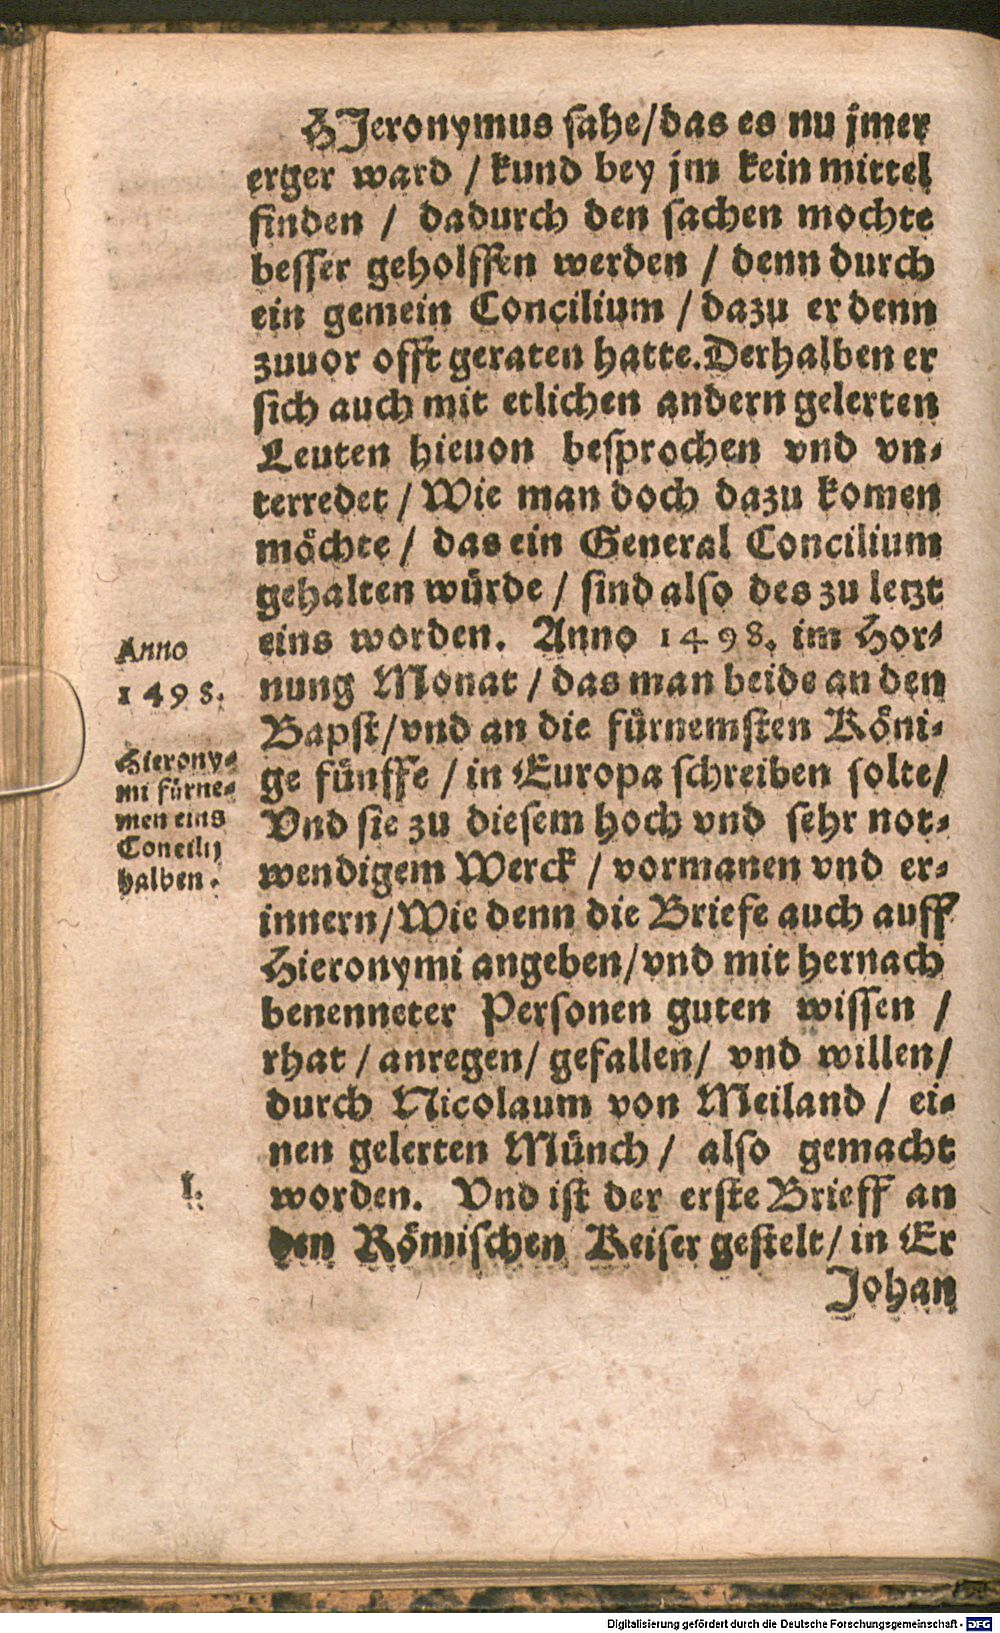 HJeronymus sahe/das es nu jmer
erger ward / kund bey jm kein mittel
finden / dadurch den sachen mochte
besser geholffen werden / denn durch
ein gemein Concilium / dazu er denn
zuuor offt geraten hatte. Derhalben er
sich auch mit etlichen andern gelerten
Leuten hieuon besprochen vnd vn-
terredet / Wie man doch dazu komen
möchte / das ein General Concilium
gehalten würde / sind also des zu letzt
eins worden. Anno 1498. im Hor-
nung Monat / das man beide an den
Bapst/vnd an die fürnemsten Köni-
ge fünffe / in Europa schreiben solte/
Vnd sie zu diesem hoch vnd sehr not-
wendigem Werck / vormanen vnd er-
innern/Wie denn die Briefe auch auff
Hieronymi angeben/vnd mit hernach
benenneter Personen guten wissen /
rhat / anregen/ gefallen/ vnd willen/
durch Nicolaum von Meiland / ei-
nen gelerten Münch / also gemacht
worden. Vnd ist der erste Brieff an
den Römischen Keiser gestelt/ in Er
Johan
Anno
1498.
Hierony-
mi fürne-
men eins
Concilij
halben.
I.
Digitalisierung gefördert durch die Deutsche Forschungsgemeinschaft - DFG